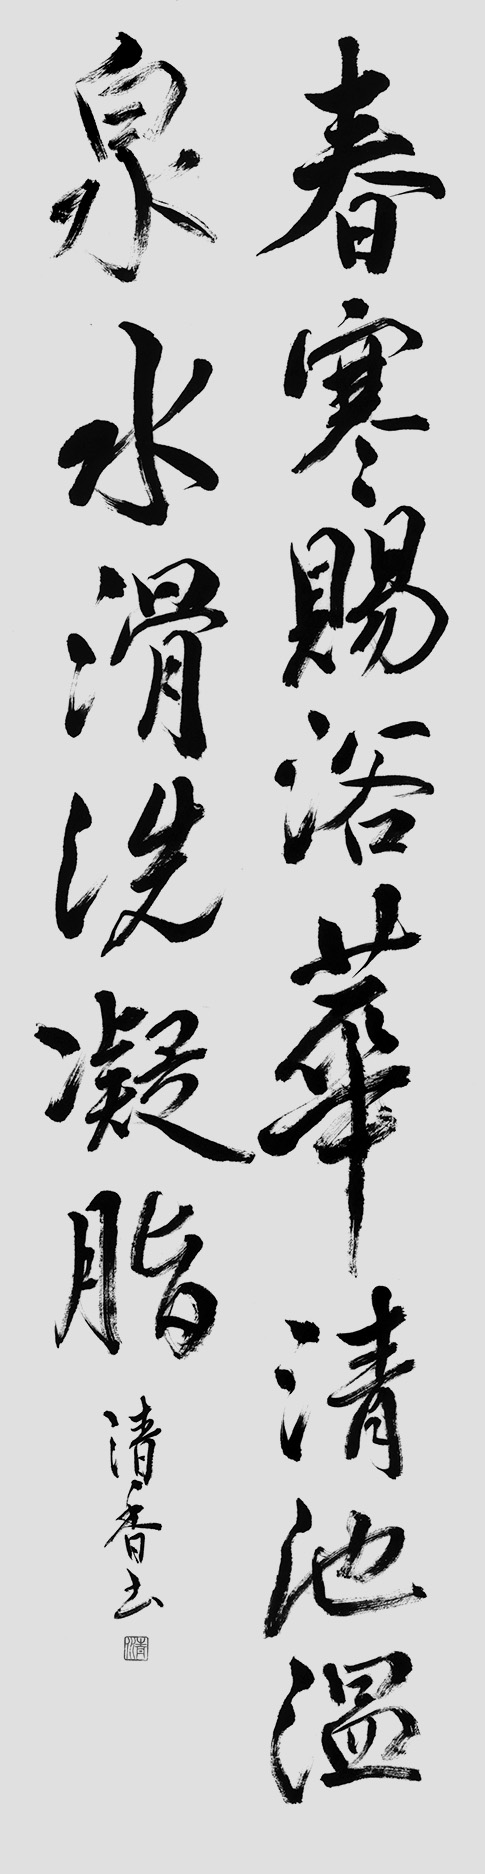 春寒賜浴華清池温
泉水滑洗凝脂
清香书